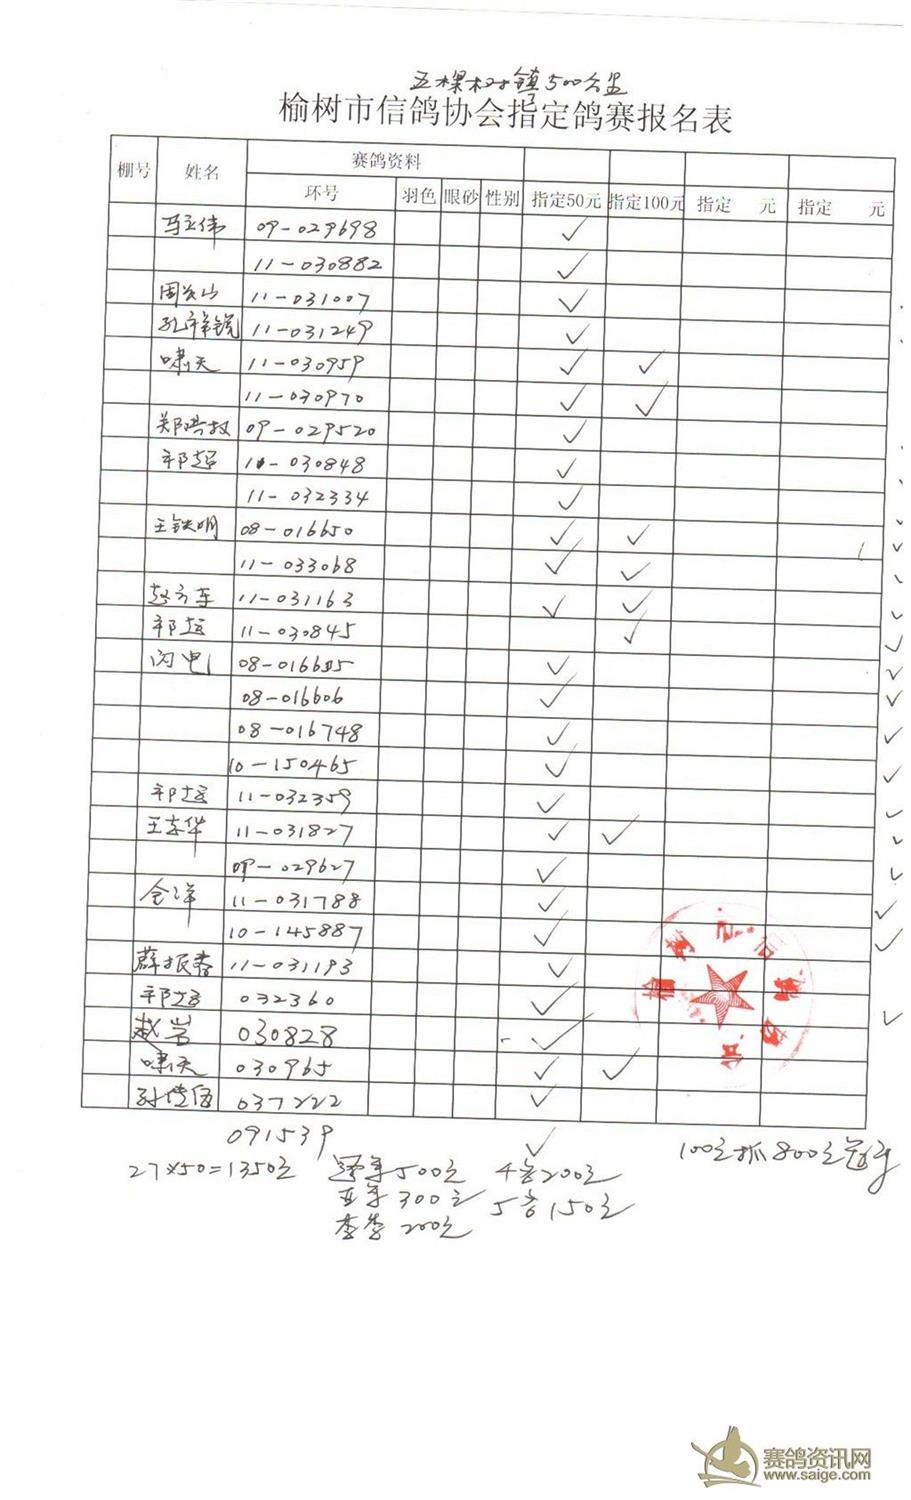 五棵树镇500公里
榆树市信鸽协会指定鸽赛报名表
棚号 姓名 赛鸽资料
环号 羽色 眼砂 性别 指定50元 指定100元 指定 元 指定 元
马立伟 09-029698 ✓
11-030882 ✓
11-031007 ✓
孔祥锐 11-031249 ✓
啸天 11-030959 ✓ ✓
11-030970 ✓ ✓
09-029520 ✓
祁超 10-030848 ✓
11-032334 ✓
王铁明 08-016650 ✓ ✓
11-033068 ✓ ✓
11-031163 ✓ ✓
祁超 11-030845 ✓
闪电 ✓
08-016606 ✓
08-016748 ✓
10-150465 ✓
祁超 11-032359 ✓
王志华 11-031827 ✓ ✓
09-029627 ✓
金洋 11-031788 ✓
10-145887 ✓
薛振春 11-031193 ✓
祁超 032360 ✓
赵岩 030828 ✓
啸天 030965 ✓ ✓
037222 ✓
091539 ✓
27×50=1350元 冠军500元 4名200元 100元抓800元冠
亚军300元 5名150元
季军200元
榆树市信鸽协会
赛鸽资讯网
www.saige.com